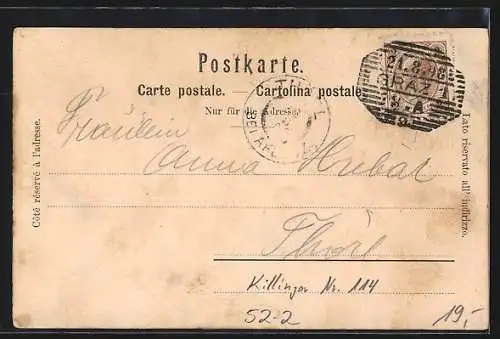 Postkarte.
Carte postale. — Cartolina postale.
Nur für die Adresse.
Côté réservé à l'adresse.
Lato riservato all' indirizzo.
21.8.98
GRAZ 1
THÖRL
BEI AFLENZ
Fräulein
Anna Hrebat
Thörl
Killinger Nr. 114
52-2
19,-